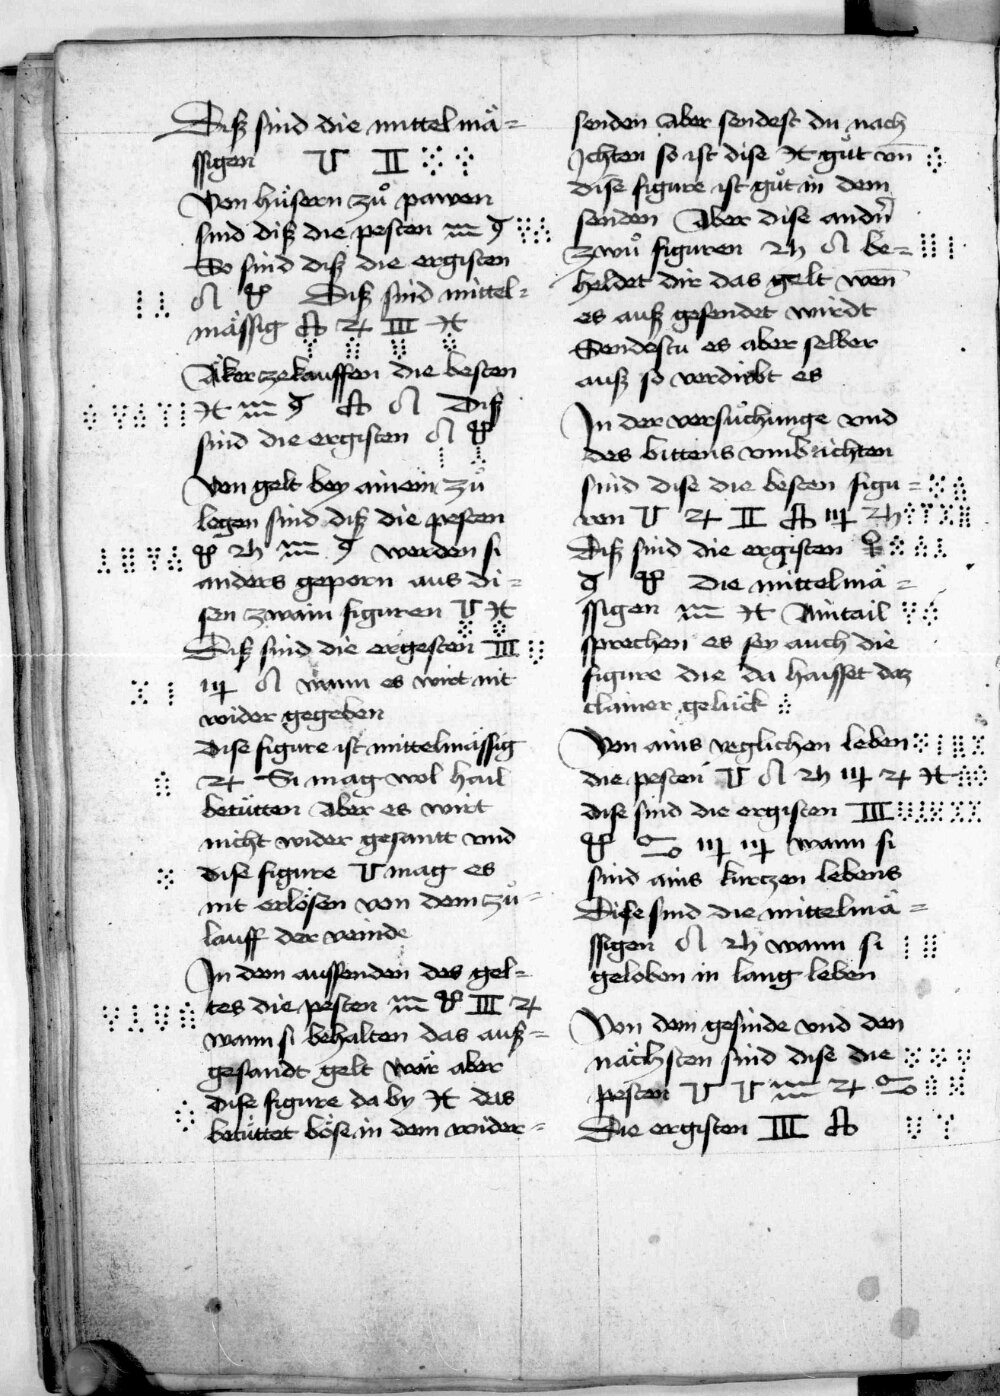 Diß sind die mittelmä=
ssigen ♉ ♊
Von hüsern zů pawen
sind diß die pesten ♒
So sind diß die ergisten
♌ Diß sind mittel=
mässig ♃ III ♓
Äker ze kauffen die besten
♓ ♒ ♌ Diß
sind die ergisten ♌
Von gelt bey ainem zů
legen sind diß die pesten
♄ ♒ werden si
anders geporn aus di=
sen zwain figuren ♉ ♓
Diß sind die ergesten III
♌ wann es wirt nit
wider gegeben
dise figure ist mittelmässig
♃ Si mag wol hail
betütten aber es wirt
nicht wider gesantt vnd
dise figure ♉ mag es
nit erlösen von dem zů=
lauff der veinde
In dem aussenden des gel=
tes die pesten ♒ III ♃
wann si behalten das auß=
gesandt gelt wär aber
dise figure da by ♓ das
betüttet böse in dem wider=
senden Aber sendest du nach
Ichten so ist dise ♓ gůt vn̄
dise figure ist gůt in dem
senden Aber dise andn̄
zwů figuren ♄ ♌ be=
heldet dir das gelt wen̄
es auß gesendet wirdt
Sendestu es aber selber
auß so verdirbt es
In der versůchunge vnd
des bittens vmb richten
sind dise die besten figu=
ren ♉ ♃ ♊ ♄
Diß sind die ergisten ☿
die mittelmä=
ssigen ♒ ♓ Aintail
sprechen es sey auch die
figure die da haisset daz
clainer gelück
Von ains yeglichen leben
die pesten ♉ ♌ ♄ ♃ ♓
dise sind die ergisten III
♋ wann si
sind ains kurtzen lebens
Dise sind die mittelmä=
ssigen ♌ ♄ wann si
geloben in lang leben
Von dem gesinde vnd den
nächsten sind dise die
pesten ♉ ♉ ♒ ♃ ♋
Die ergisten III